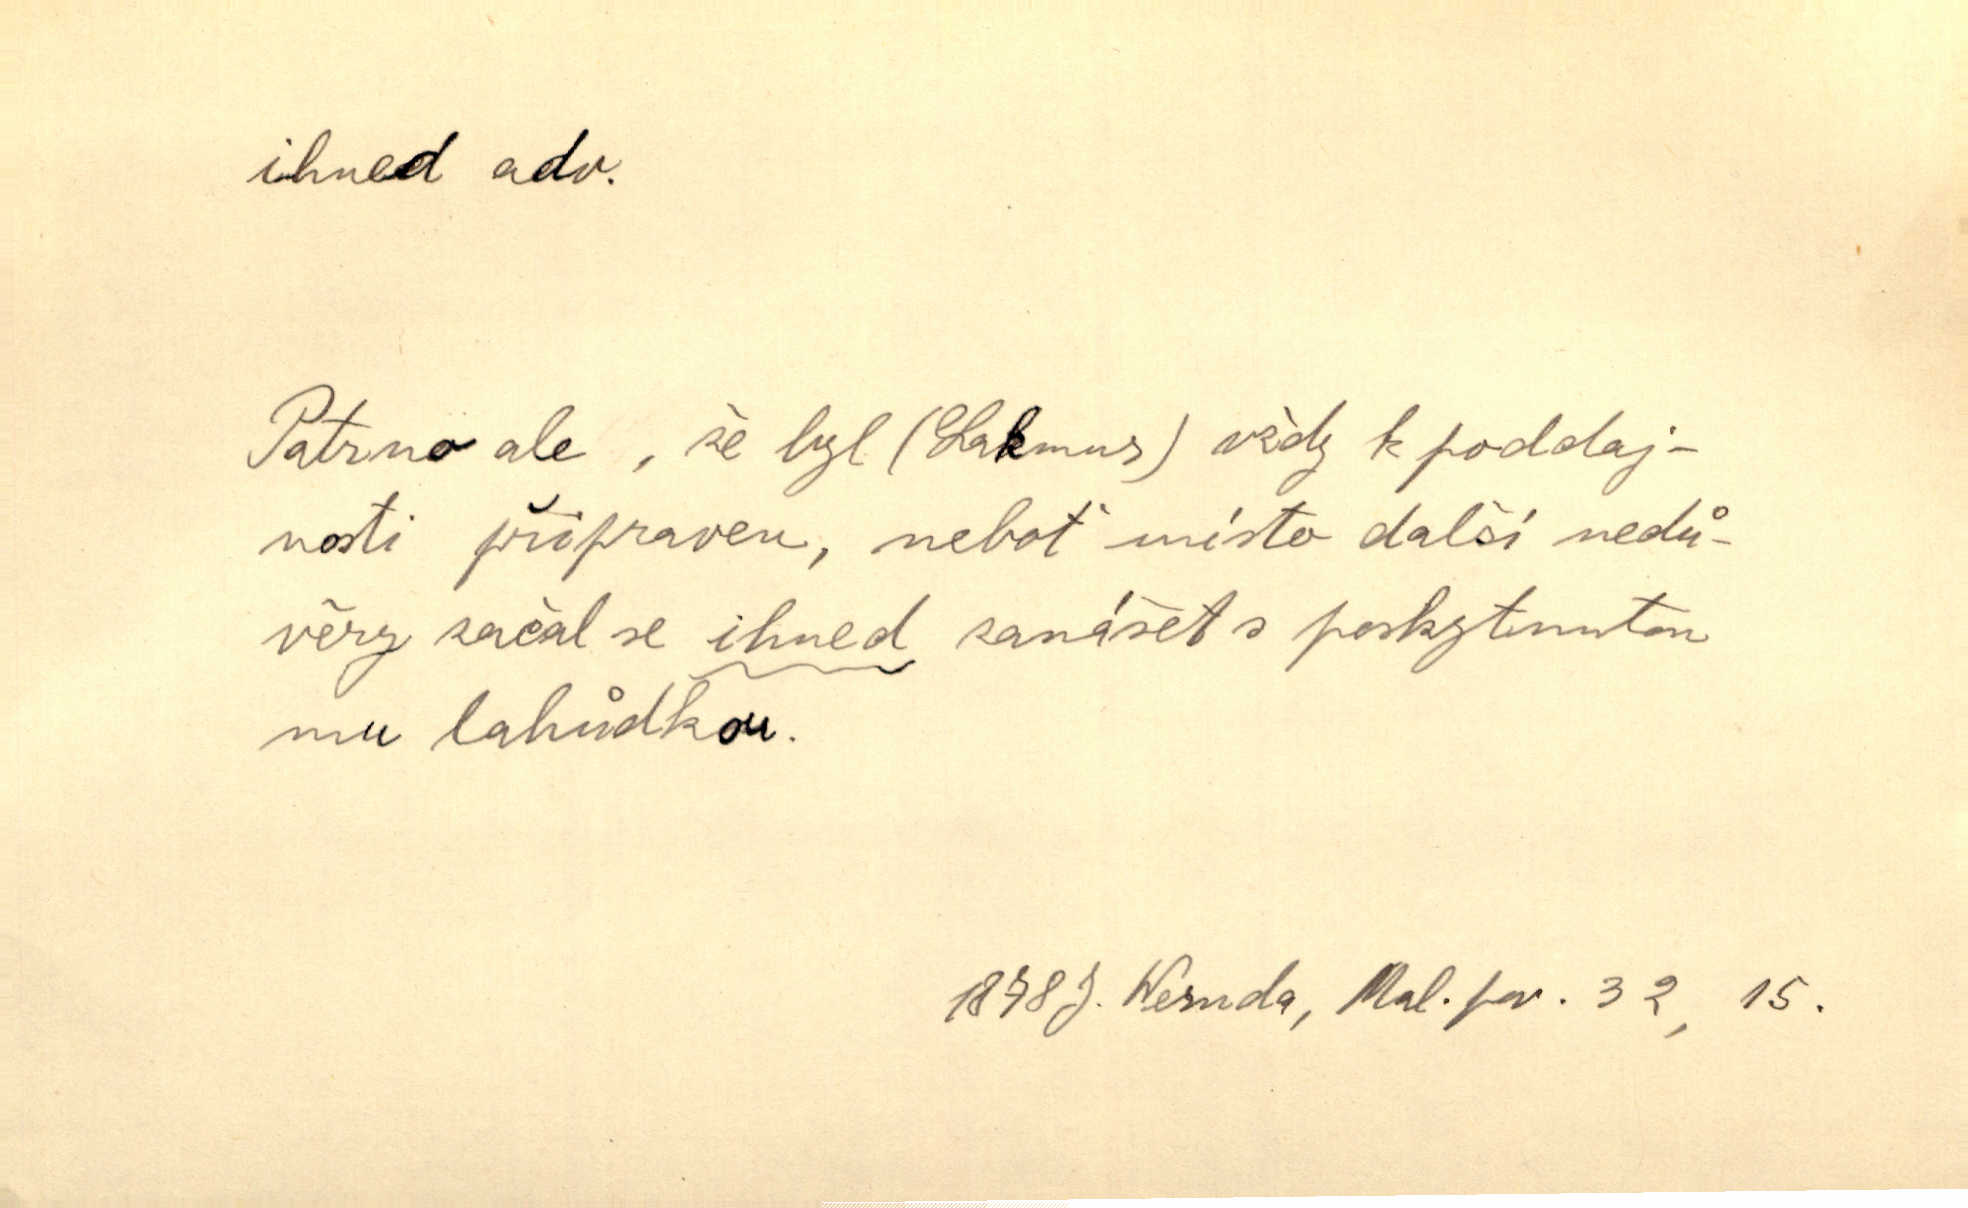 ihned adv.
Patrno ale, že byl (Lakmus) vždy k poddaj-
nosti připraven, neboť místo další nedů-
věry začal se ihned zanášet s poskytnutou
mu lahůdkou.
1878 J. Wernda, Mal. pov. 32, 15.